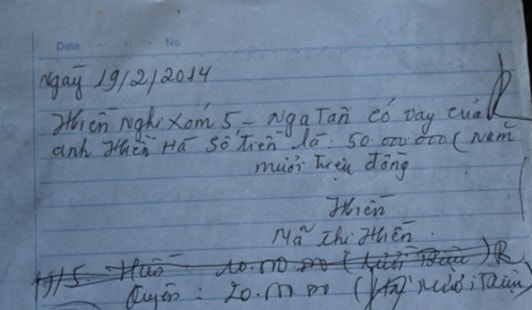 Date No.
Ngày 19/2/2014
Hiền Nghi Xóm 5 - Nga Tân có vay của
anh Hiền Hà số tiền là: 50.000.000 (Năm
mươi triệu đồng
Hiền
Mã Thị Hiền
19/5 10.000.000 (
Quyên: 20.